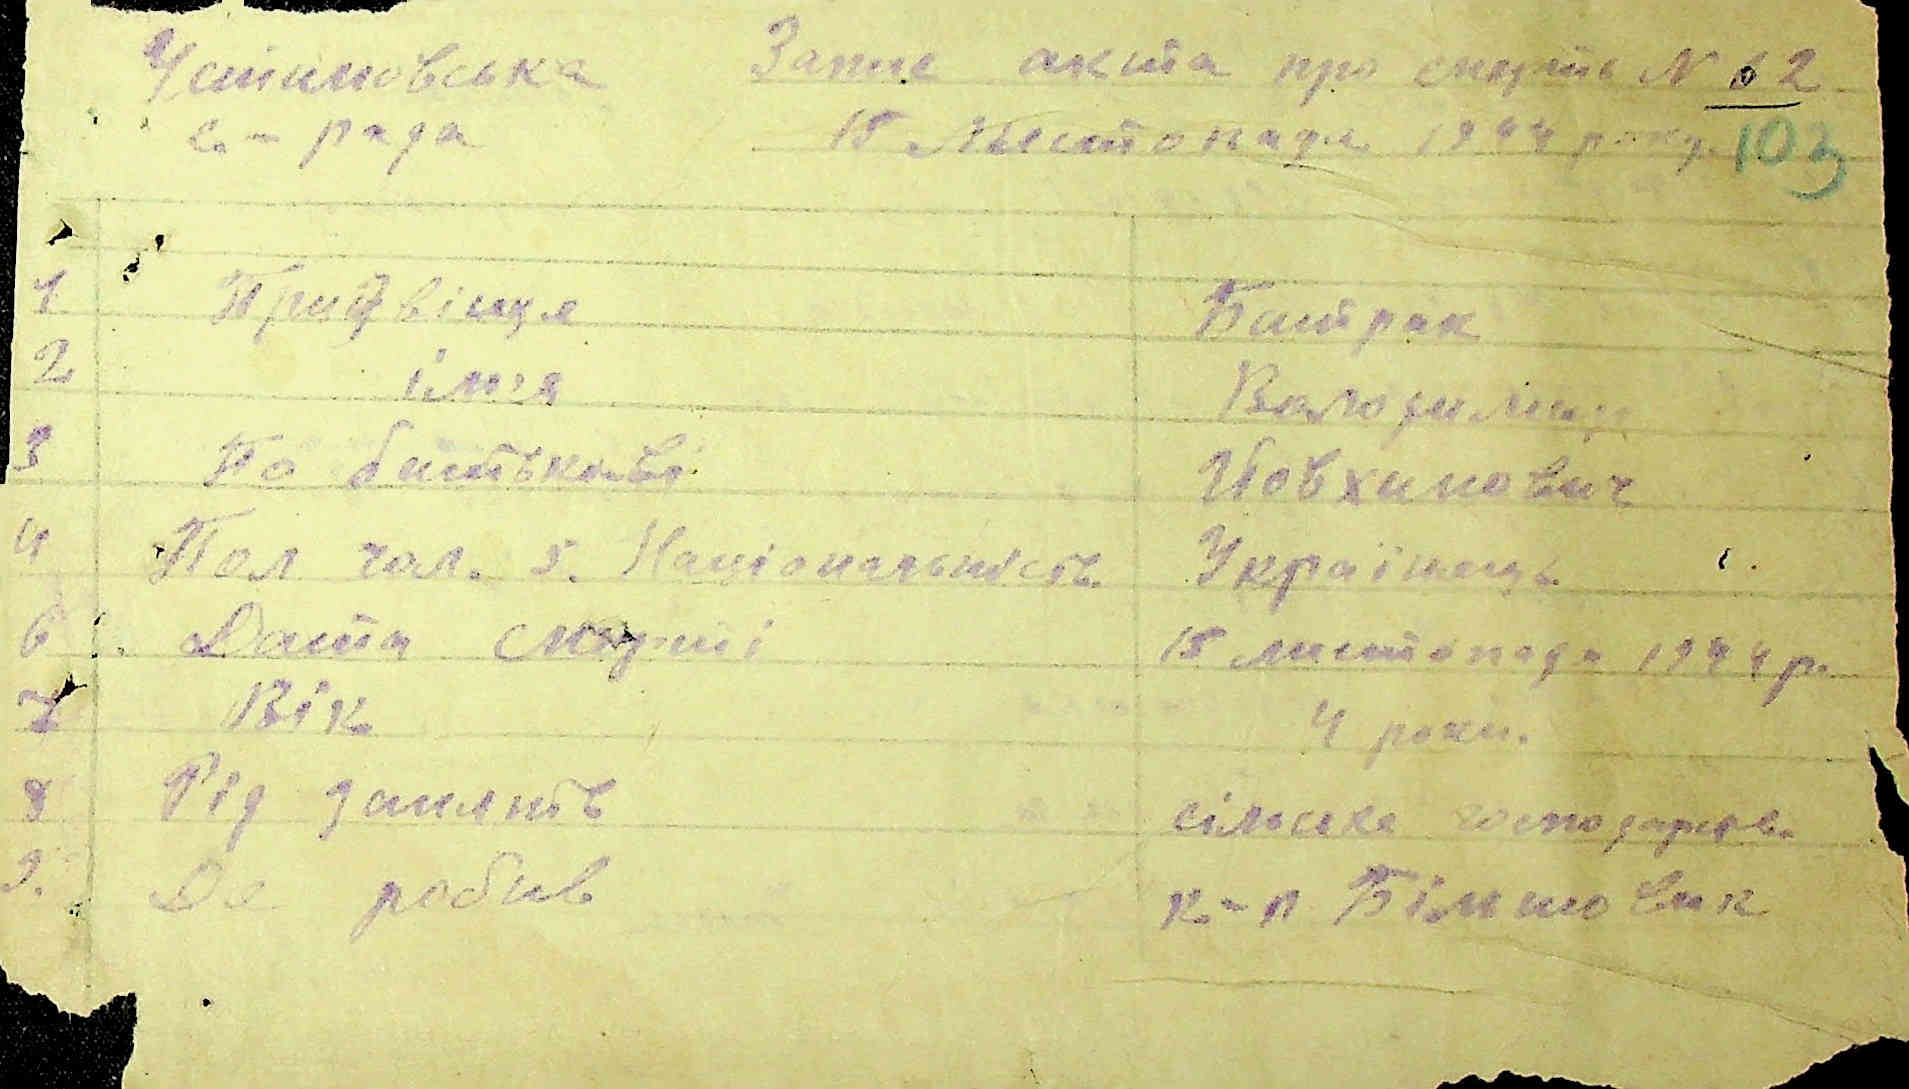 Устимовська Запис акта про смерть N 62
с.-рада 15 Листопада 1944 року. 103
1 Призвіще Бастрак
2 імʼя Володимир
3 По батькові Йовхимович
4 Пол чол. 5. Національність Українець
6 Дата смерті 15 листопада 1944 р.
7 Вік 4 роки.
8 Рід занять сільске господарств.
9. Де робив к-п Більшовик